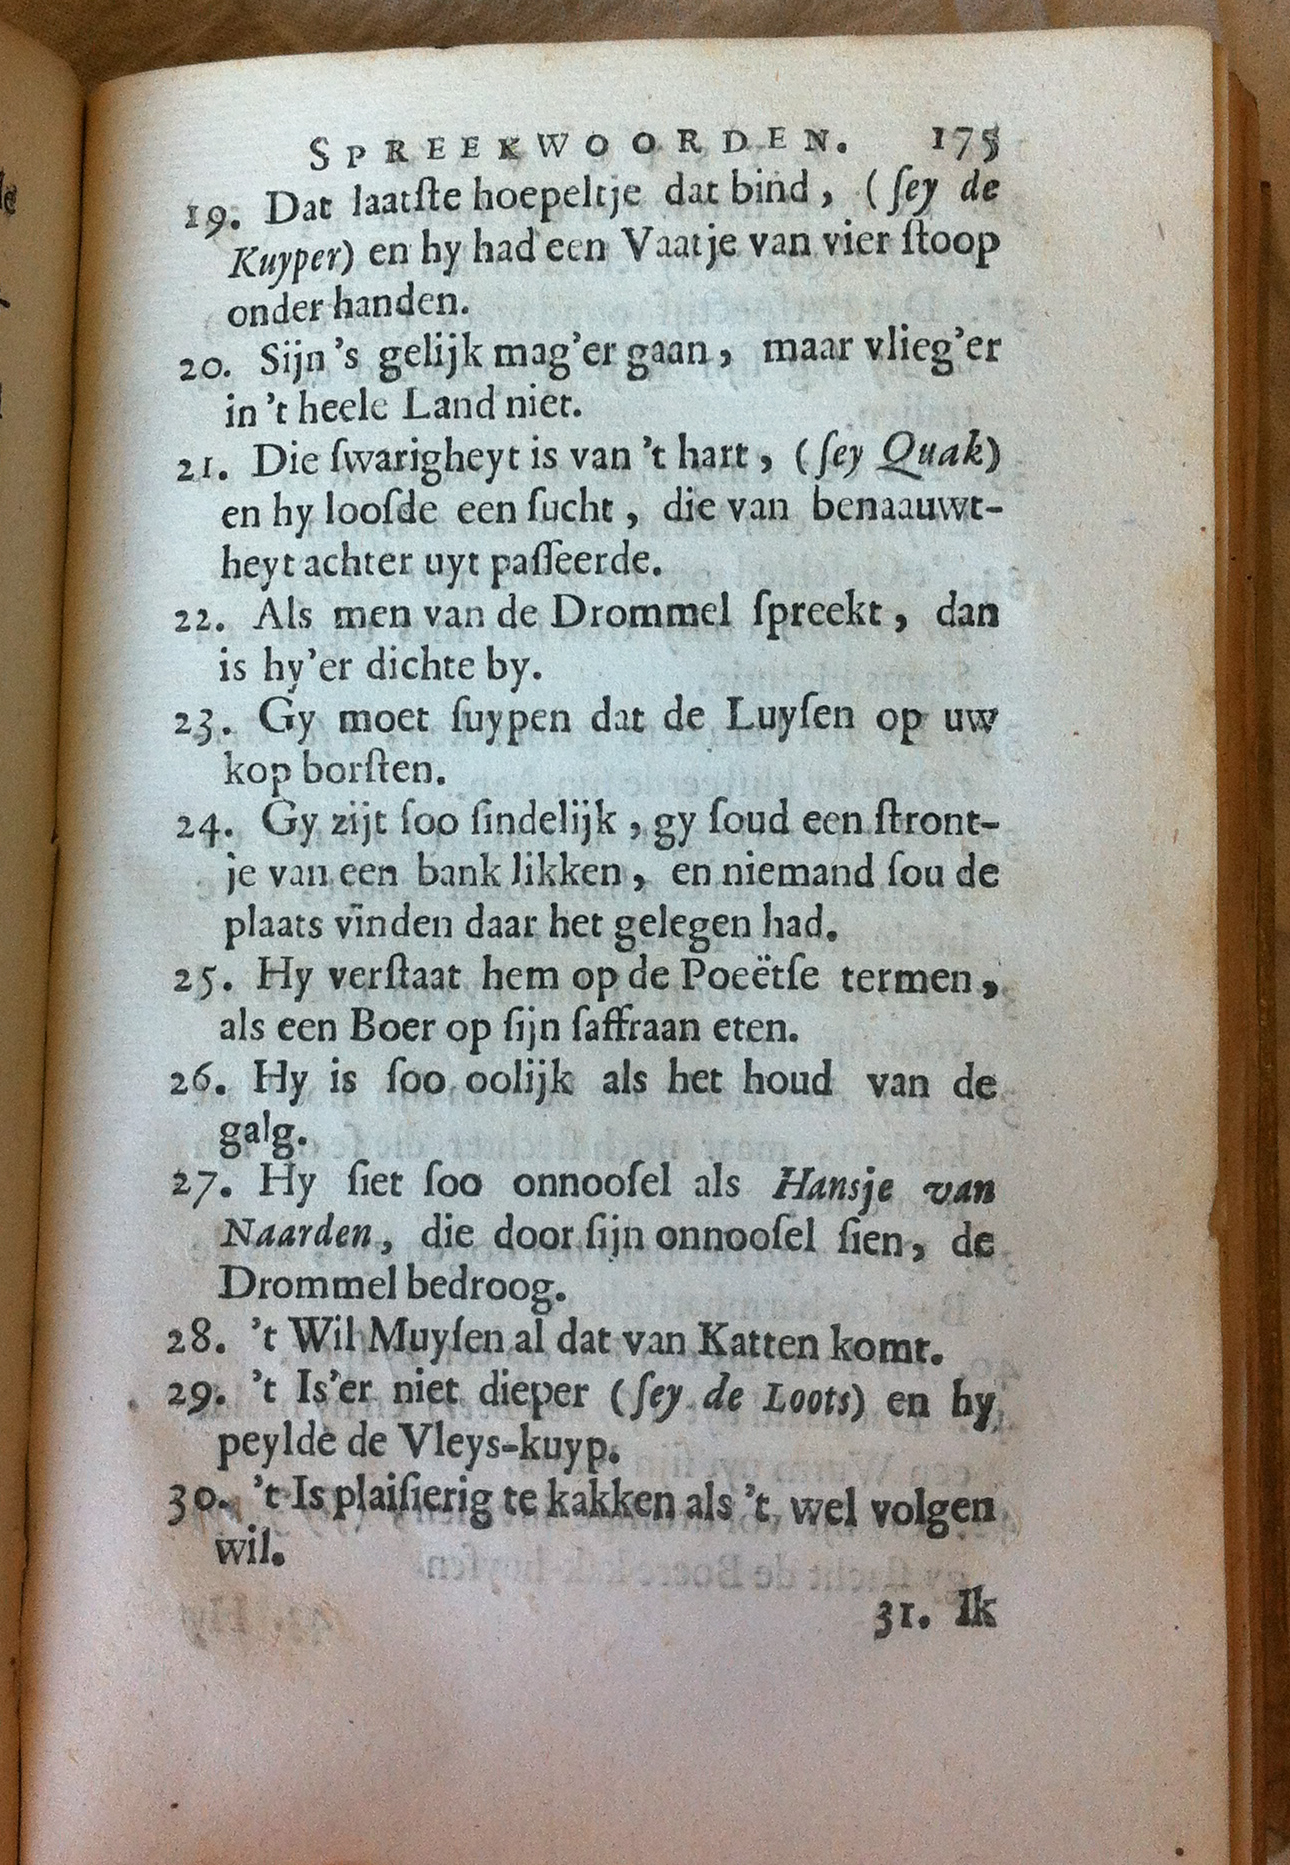 SPREEKWOORDEN. 175
19. Dat laatſte hoepeltje dat bind, (ſey de
Kuyper) en hy had een Vaatje van vier ſtoop
onder handen.
20. Sijn 's gelijk mag'er gaan, maar vlieg'er
in 't heele Land niet.
21. Die ſwarigheyt is van 't hart, (ſey Quak)
en hy looſde een ſucht, die van benaauwt-
heyt achter uyt paſſeerde.
22. Als men van de Drommel ſpreekt, dan
is hy'er dichte by.
23. Gy moet ſuypen dat de Luyſen op uw
kop borſten.
24. Gy zijt ſoo ſindelijk, gy ſoud een ſtront-
je van een bank likken, en niemand ſou de
plaats vinden daar het gelegen had.
25. Hy verſtaat hem op de Poeëtſe termen,
als een Boer op ſijn ſaffraan eten.
26. Hy is ſoo oolijk als het houd van de
galg.
27. Hy ſiet ſoo onnooſel als Hansje van
Naarden, die door ſijn onnooſel ſien, de
Drommel bedroog.
28. 't Wil Muyſen al dat van Katten komt.
29. 't Is'er niet dieper (ſey de Loots) en hy
peylde de Vleys-kuyp.
30. 't Is plaiſierig te kakken als 't wel volgen
wil.
31. Ik